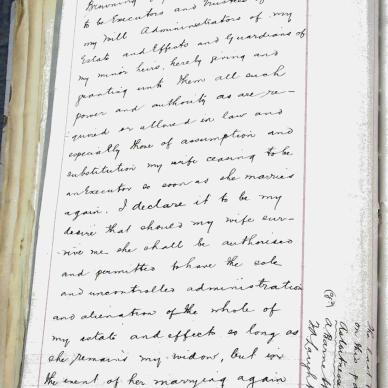 to be Executors and Trustees of
my Will Administrators of my
Estate and Effects and Guardians of
my minor heirs, hereby giving and
granting unto them all such
power and authority as are re-
quired or allowed in law and
especially those of assumption and
substitution my wife ceasing to be
an Executor so soon as she marries
again. I declare it to be my
desire that should my wife sur-
vive me she shall be authorised
and permitted to have the sole
and uncontrolled administration
and alienation of the whole of
my estate and effects so long as
she remains my widow, but in
the event of her marrying again